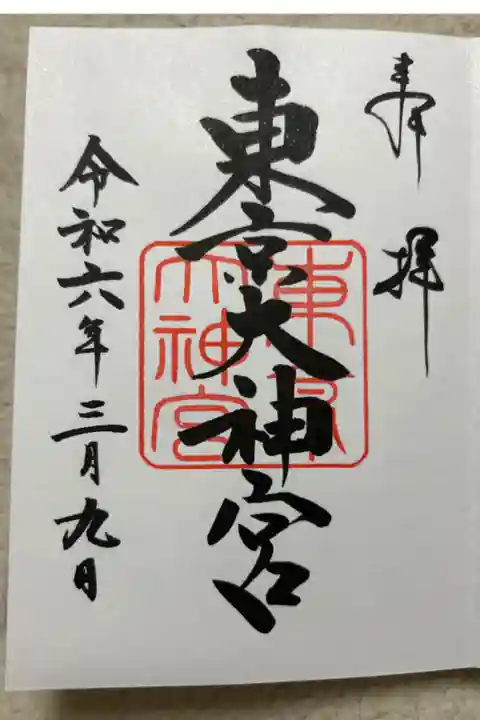 奉拝
東京大神宮
東京大神宮
令和六年三月九日